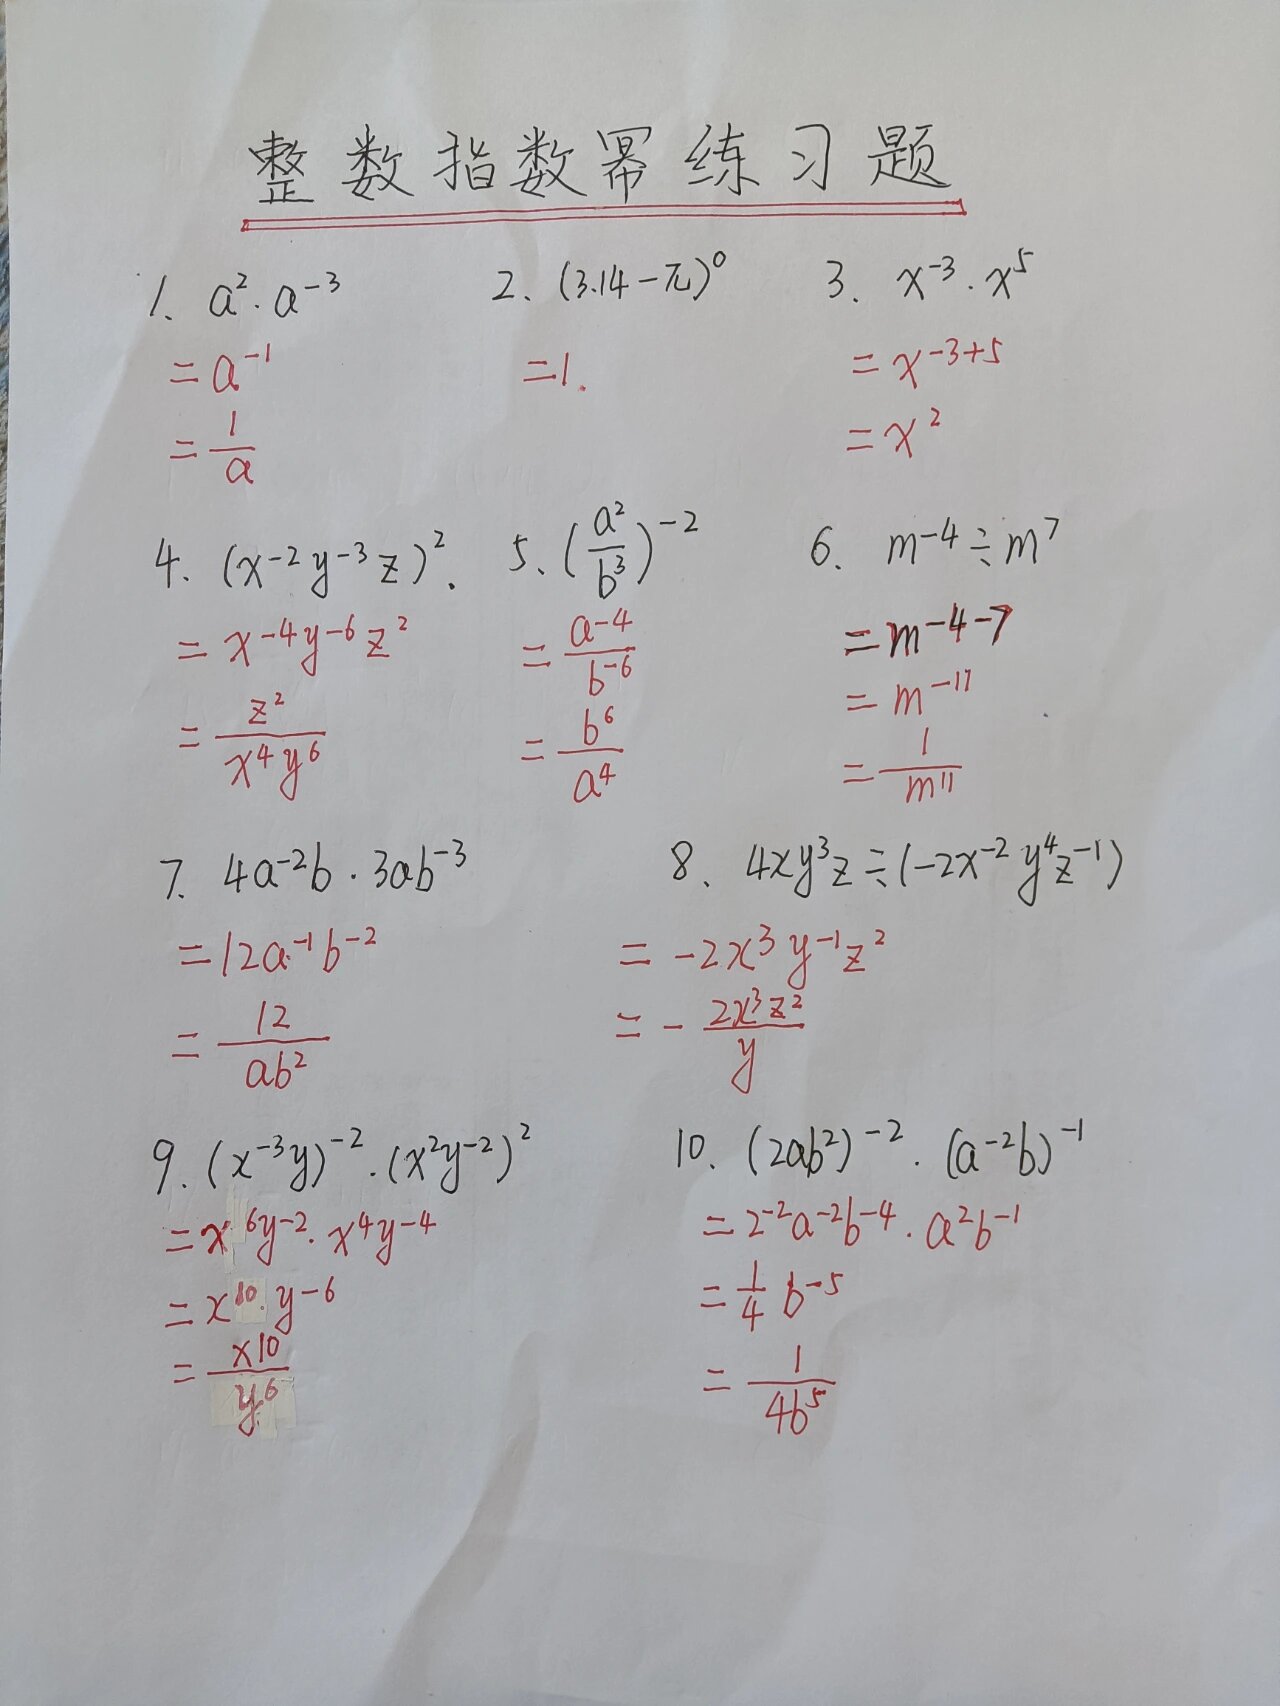 整数指数幂练习题
1. a²·a⁻³
= a⁻¹
= 1/a
2. (3.14-π)⁰
=1.
3. x⁻³·x⁵
= x⁻³⁺⁵
= x²
4. (x⁻²y⁻³z)².
= x⁻⁴y⁻⁶z²
= z²/(x⁴y⁶)
5. (a²/b³)⁻²
= a⁻⁴/b⁻⁶
= b⁶/a⁴
6. m⁻⁴÷m⁷
= m⁻⁴⁻⁷
= m⁻¹¹
= 1/m¹¹
7. 4a⁻²b·3ab⁻³
= 12a⁻¹b⁻²
= 12/(ab²)
8. 4xy³z÷(-2x⁻²y⁴z⁻¹)
= -2x³y⁻¹z²
= -2x³z²/y
9. (x⁻³y)⁻²·(x²y⁻²)²
= x⁶y⁻²·x⁴y⁻⁴
= x¹⁰·y⁻⁶
= x¹⁰/y⁶
10. (2ab²)⁻²·(a⁻²b)⁻¹
= 2⁻²a⁻²b⁻⁴·a²b⁻¹
= 1/4 b⁻⁵
= 1/(4b⁵)